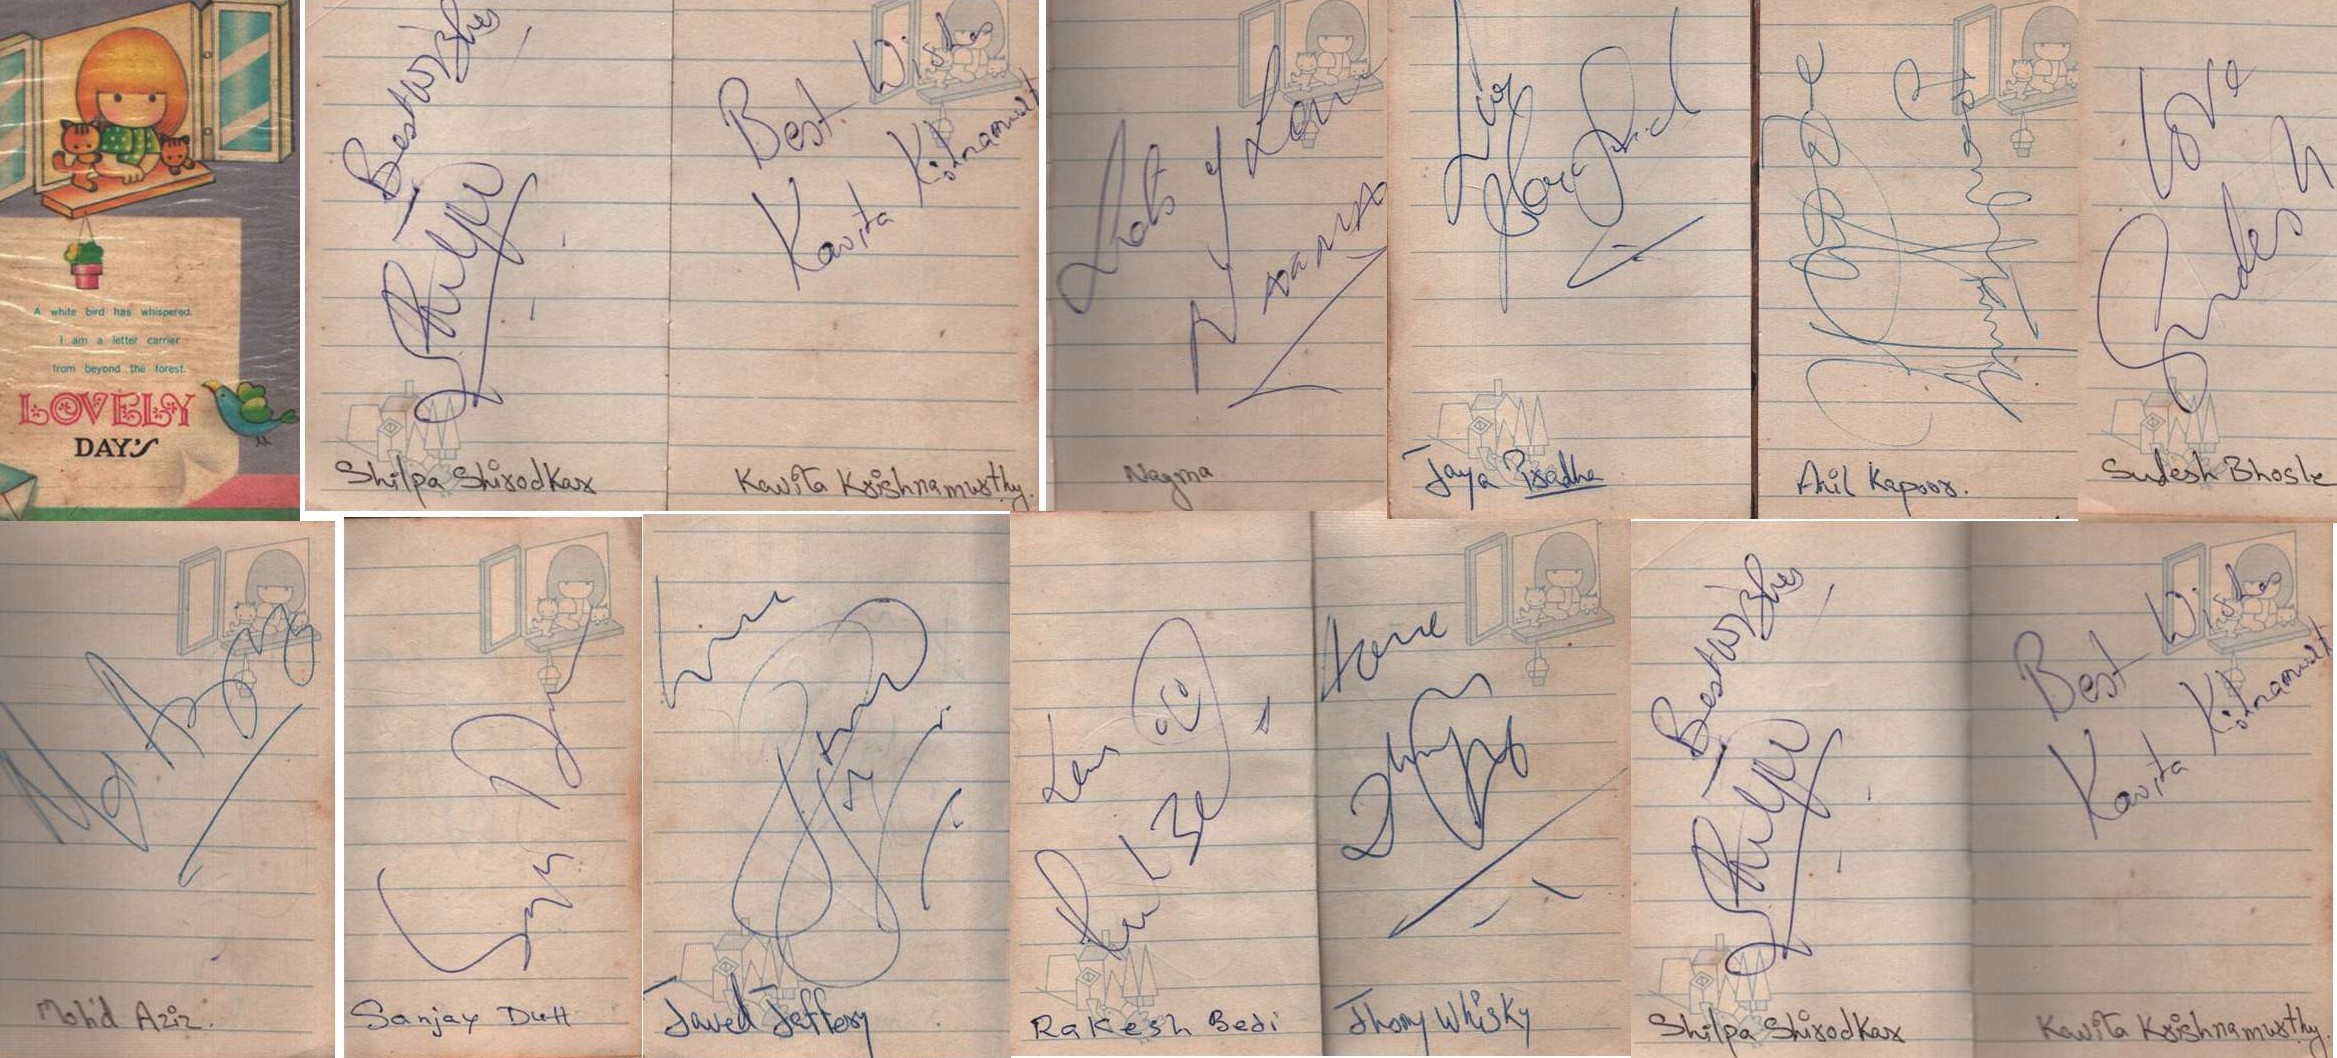 A white bird has whispered.
I am a letter carrier
from beyond the forest.
LOVELY
DAY'S
Best wishes
Shilpa
Shilpa Shirodkar
Best Wishes
Kavita Krishnamurthy
Kavita Krishnamurthy.
Lots of Love
Nagma
Nagma
Love
Jaya Prad
Jaya Pradha
Anil Kapoor.
Love
Sudesh
Sudesh Bhosle
Md Aziz
Mohd Aziz.
Sanjay Dutt
Javed Jeffery
Rakesh Bedi
Jhony Whisky
Best wishes
Shilpa
Shilpa Shirodkar
Best Wishes
Kavita Krishnamurthy
Kavita Krishnamurthy.